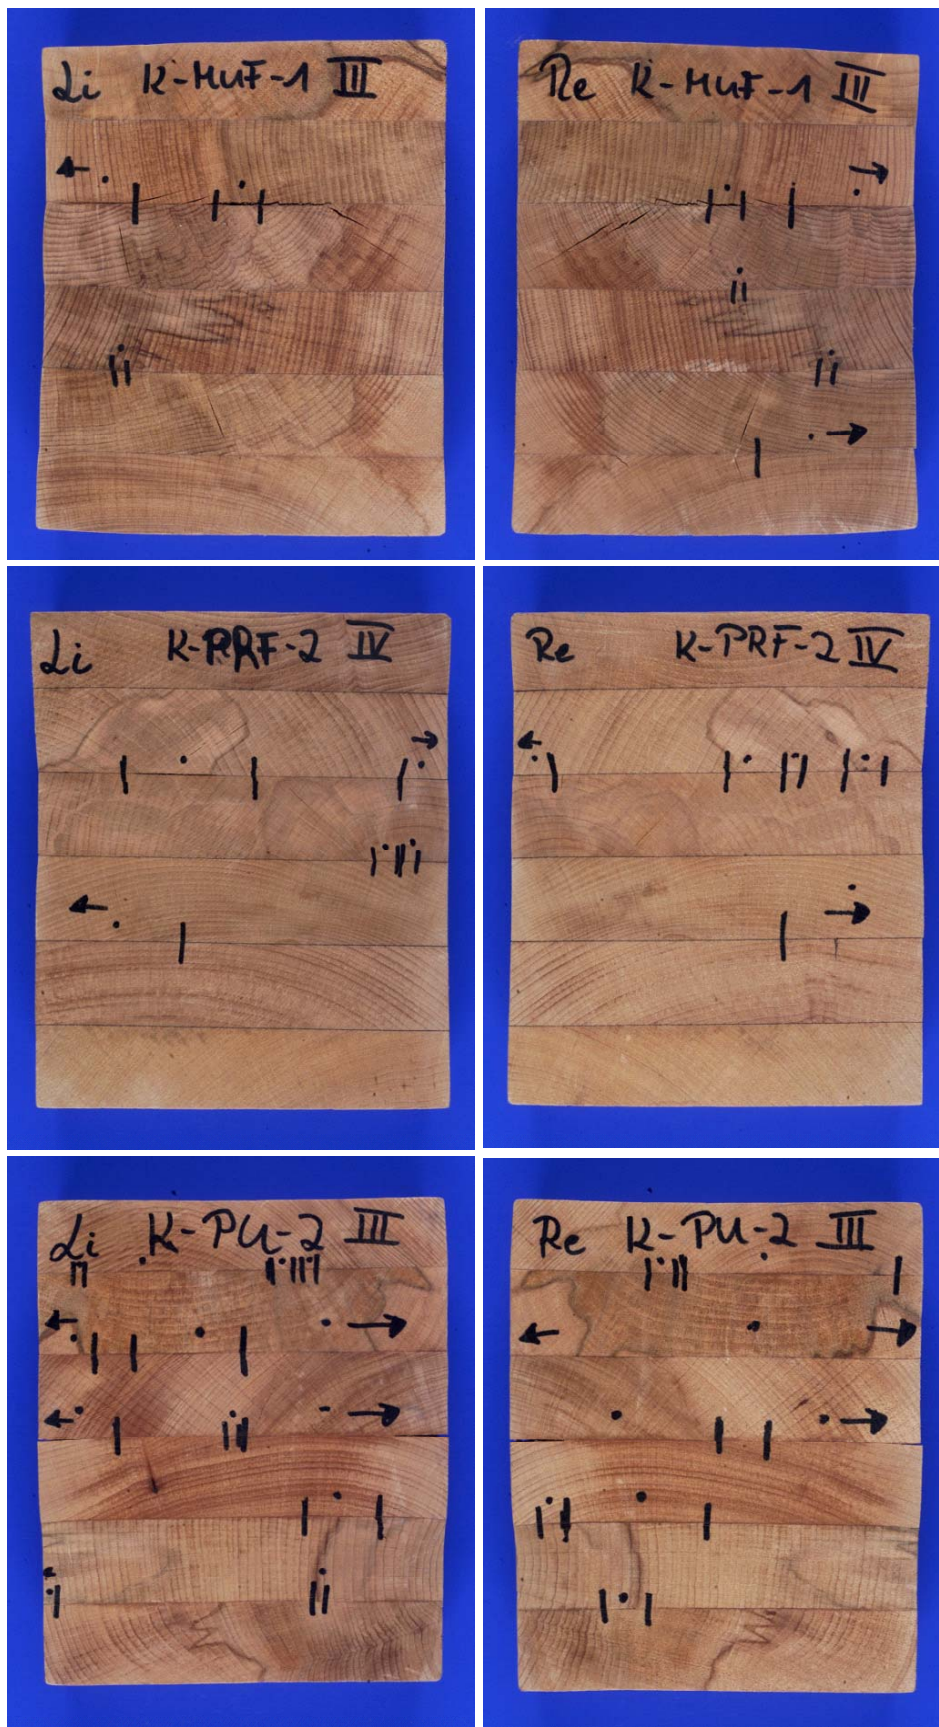 Li K-MUF-1 III
Re K-MUF-1 III
Li K-PRF-2 IV
Re K-PRF-2 IV
Li K-PU-2 III
Re K-PU-2 III